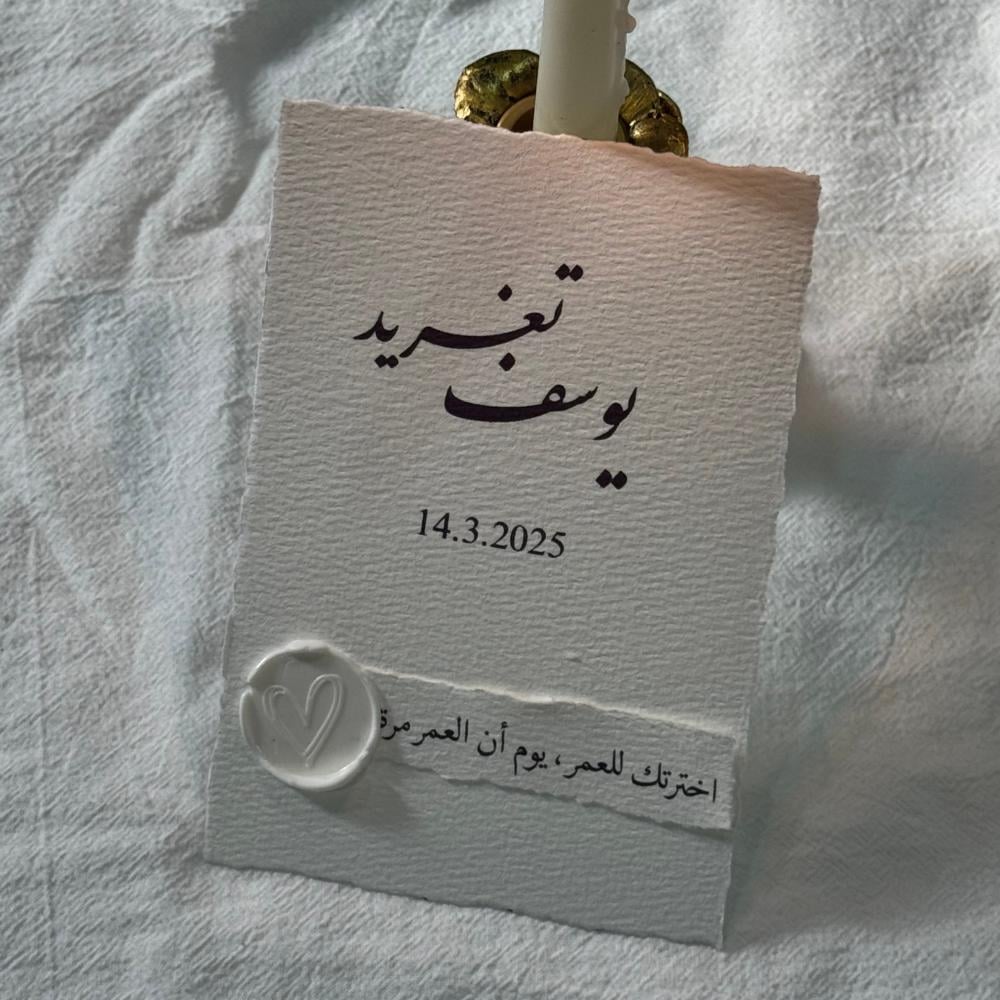 تغريد
يوسف
14.3.2025
اخترتك للعمر، يوم أن العمر مرة